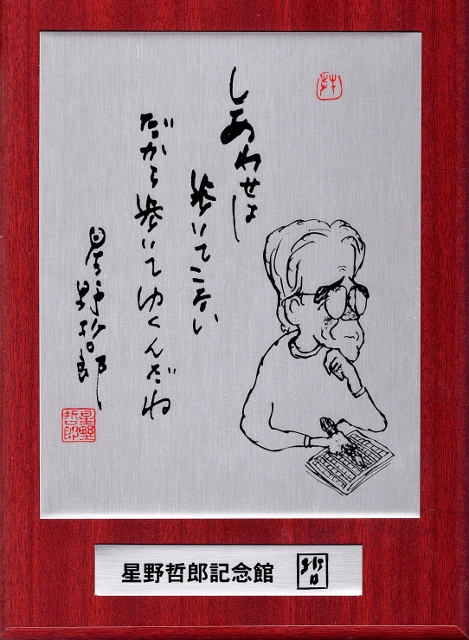 しあわせは
歩いてこない
だから歩いてゆくんだね
星野哲郎
星野哲郎
星野哲郎記念館